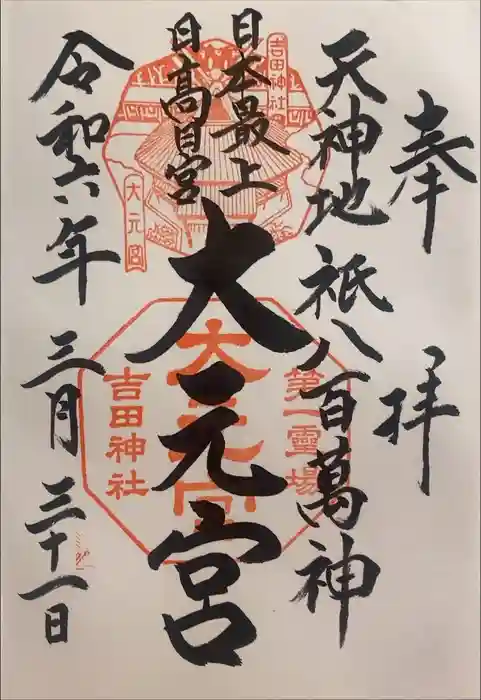 奉拝
天神地祇八百萬神
日本最上
日高日宮
大元宮
令和六年 三月 三十一日
吉田神社
大元宮
第一霊場
大元宮
吉田神社